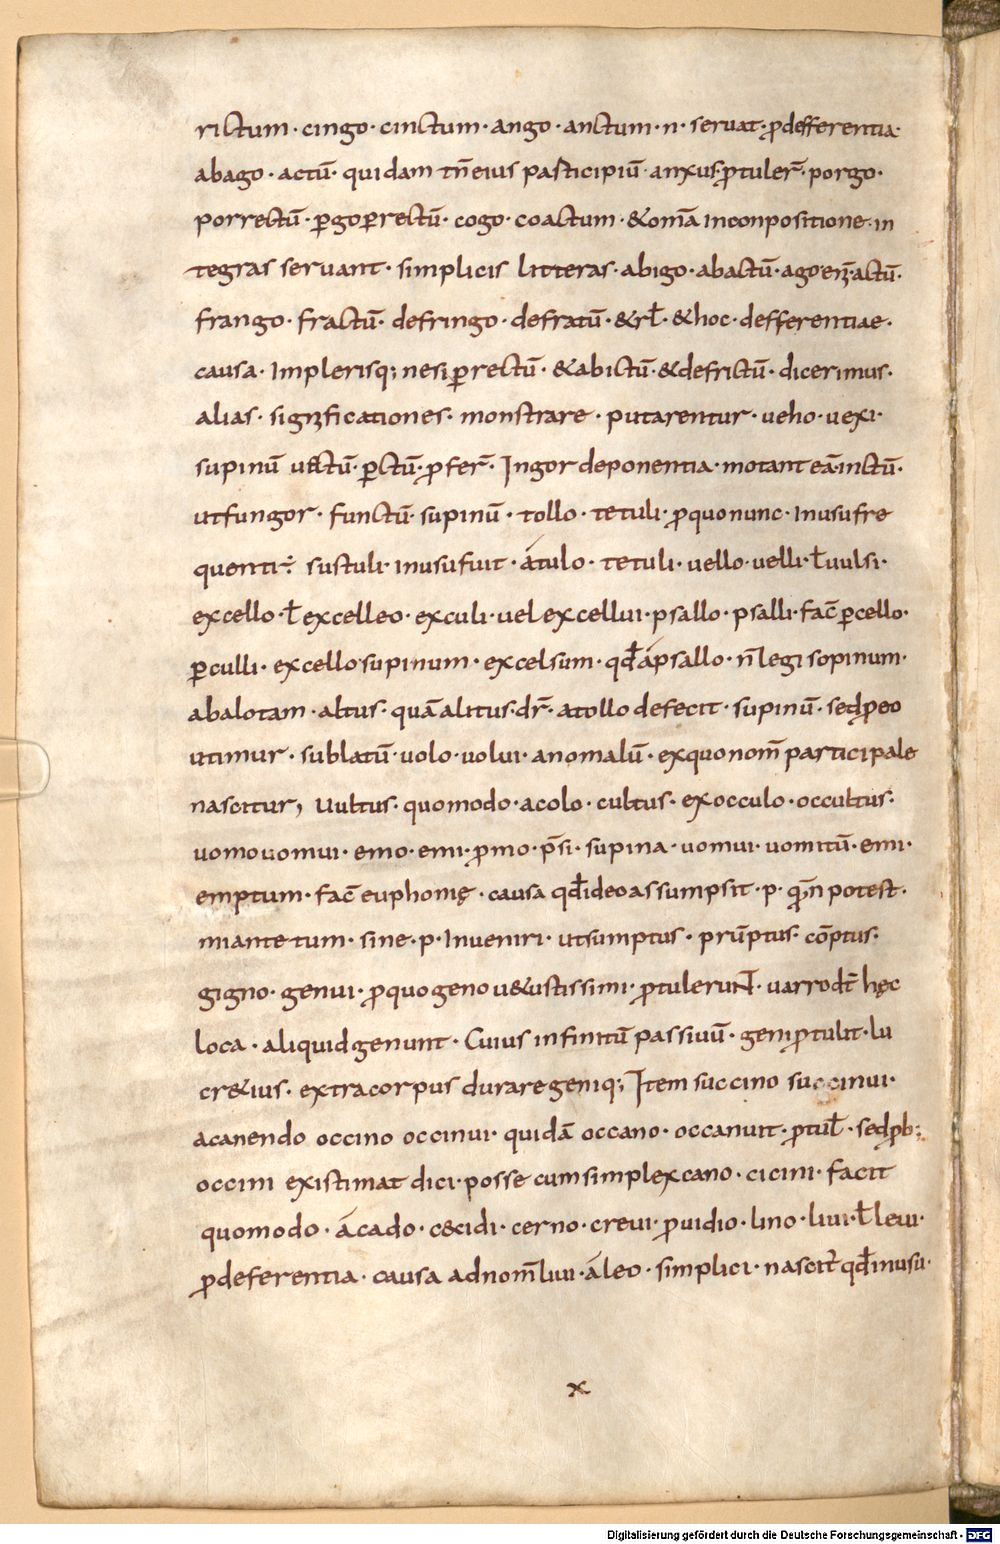 rictum · cingo · cinctum · ango · anctum · n · seruat · ꝓdefferentia ·
abago · actū · quidam tn̄eius pasticipiū · anxus · ꝓtuler̄ · porgo ·
porrectū · ꝑgoꝑrectū · cogo · coactum · &omā inconpositione · in
tegras seruant · simplicis litteras · abigo · abactū · ago
frango · fractū · defringo · defratū · &rł · &hoc · defferentiae ·
causa · Implerisq; nesiꝑrectū · &abictū · &defrictū · dicerimus ·
alias · significationes · monstrare · putarentur · ueho · uexi ·
supinū uectū · ꝑctū · ꝓfer̄ · Ingor deponentia · motant eā · inctū ·
utfungor · functū · supinū · tollo · tetuli · ꝓquonunc · inusufre
quenti · sustuli · inusufuit · átulo · tetuli · uello · uelli · ł uulsi ·
excello · ł excelleo · exculi · uel excellui · psallo · psalli · fac̄ ꝑcello ·
ꝑculli · excello supinum · excelsum · qđ ápsallo · n̄legi sopinum ·
abalotam · altus · quā alitus · dr̄ · atollo defecit · supinū · sedꝓeo
utimur · sublatū · uolo · uolui · anomalū · exquonom̄ participale
nascitur, Uultus · quomodo · acolo · cultus · exocculo · occultus ·
uomouomui · emo · emi · ꝓmo · ꝓsi · supina · uomui · uomitū · emi ·
emptum · fac̄ euphonię · causa qđideoassumpsit · p · potest ·
miantetum · sine · p · Inueniri · utsumptus · prūptus · cōptus ·
gigno · genui · ꝓquogenou&ustissimi · ꝓtulerunt · uarrodt̄ hęc
loca · aliquidgenunt · Cuius infinitū passiuū · geniꝓtulit · lu
cr&ius · extracorpus durare geniq; Item succino succinui ·
acanendo occino occinui · quidā occano · occanuit · ꝓtuł · sedꝓb;
occini existimat dici · posse cumsimplexcano · cicini · facit
quomodo · ácado · c&cidi · cerno · creui · ꝓuidio · lino · liui · ł leui ·
ꝓdeferentia · causa adnom̄ liui · áleo · simplici · nascit̄ qđinusu ·
x
Digitalisierung gefördert durch die Deutsche Forschungsgemeinschaft - DFG